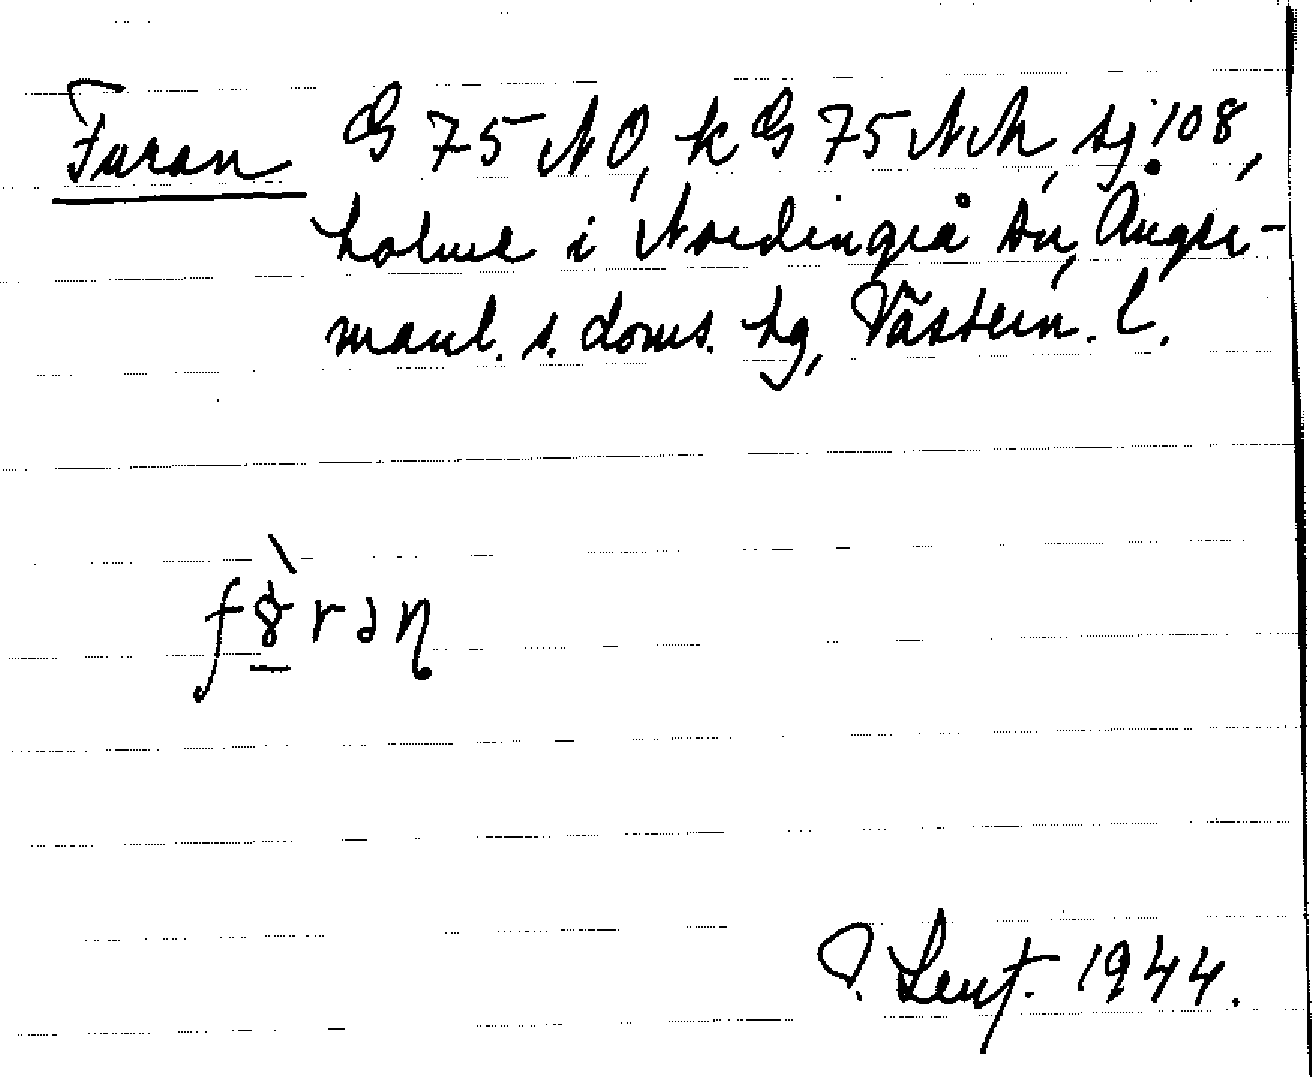 Furan G 75 NO, k G 75 NN, sj. 108,
holme i Nordingrå sn, Ånger-
manl. s. doms. hg, Västern. l.
1944.